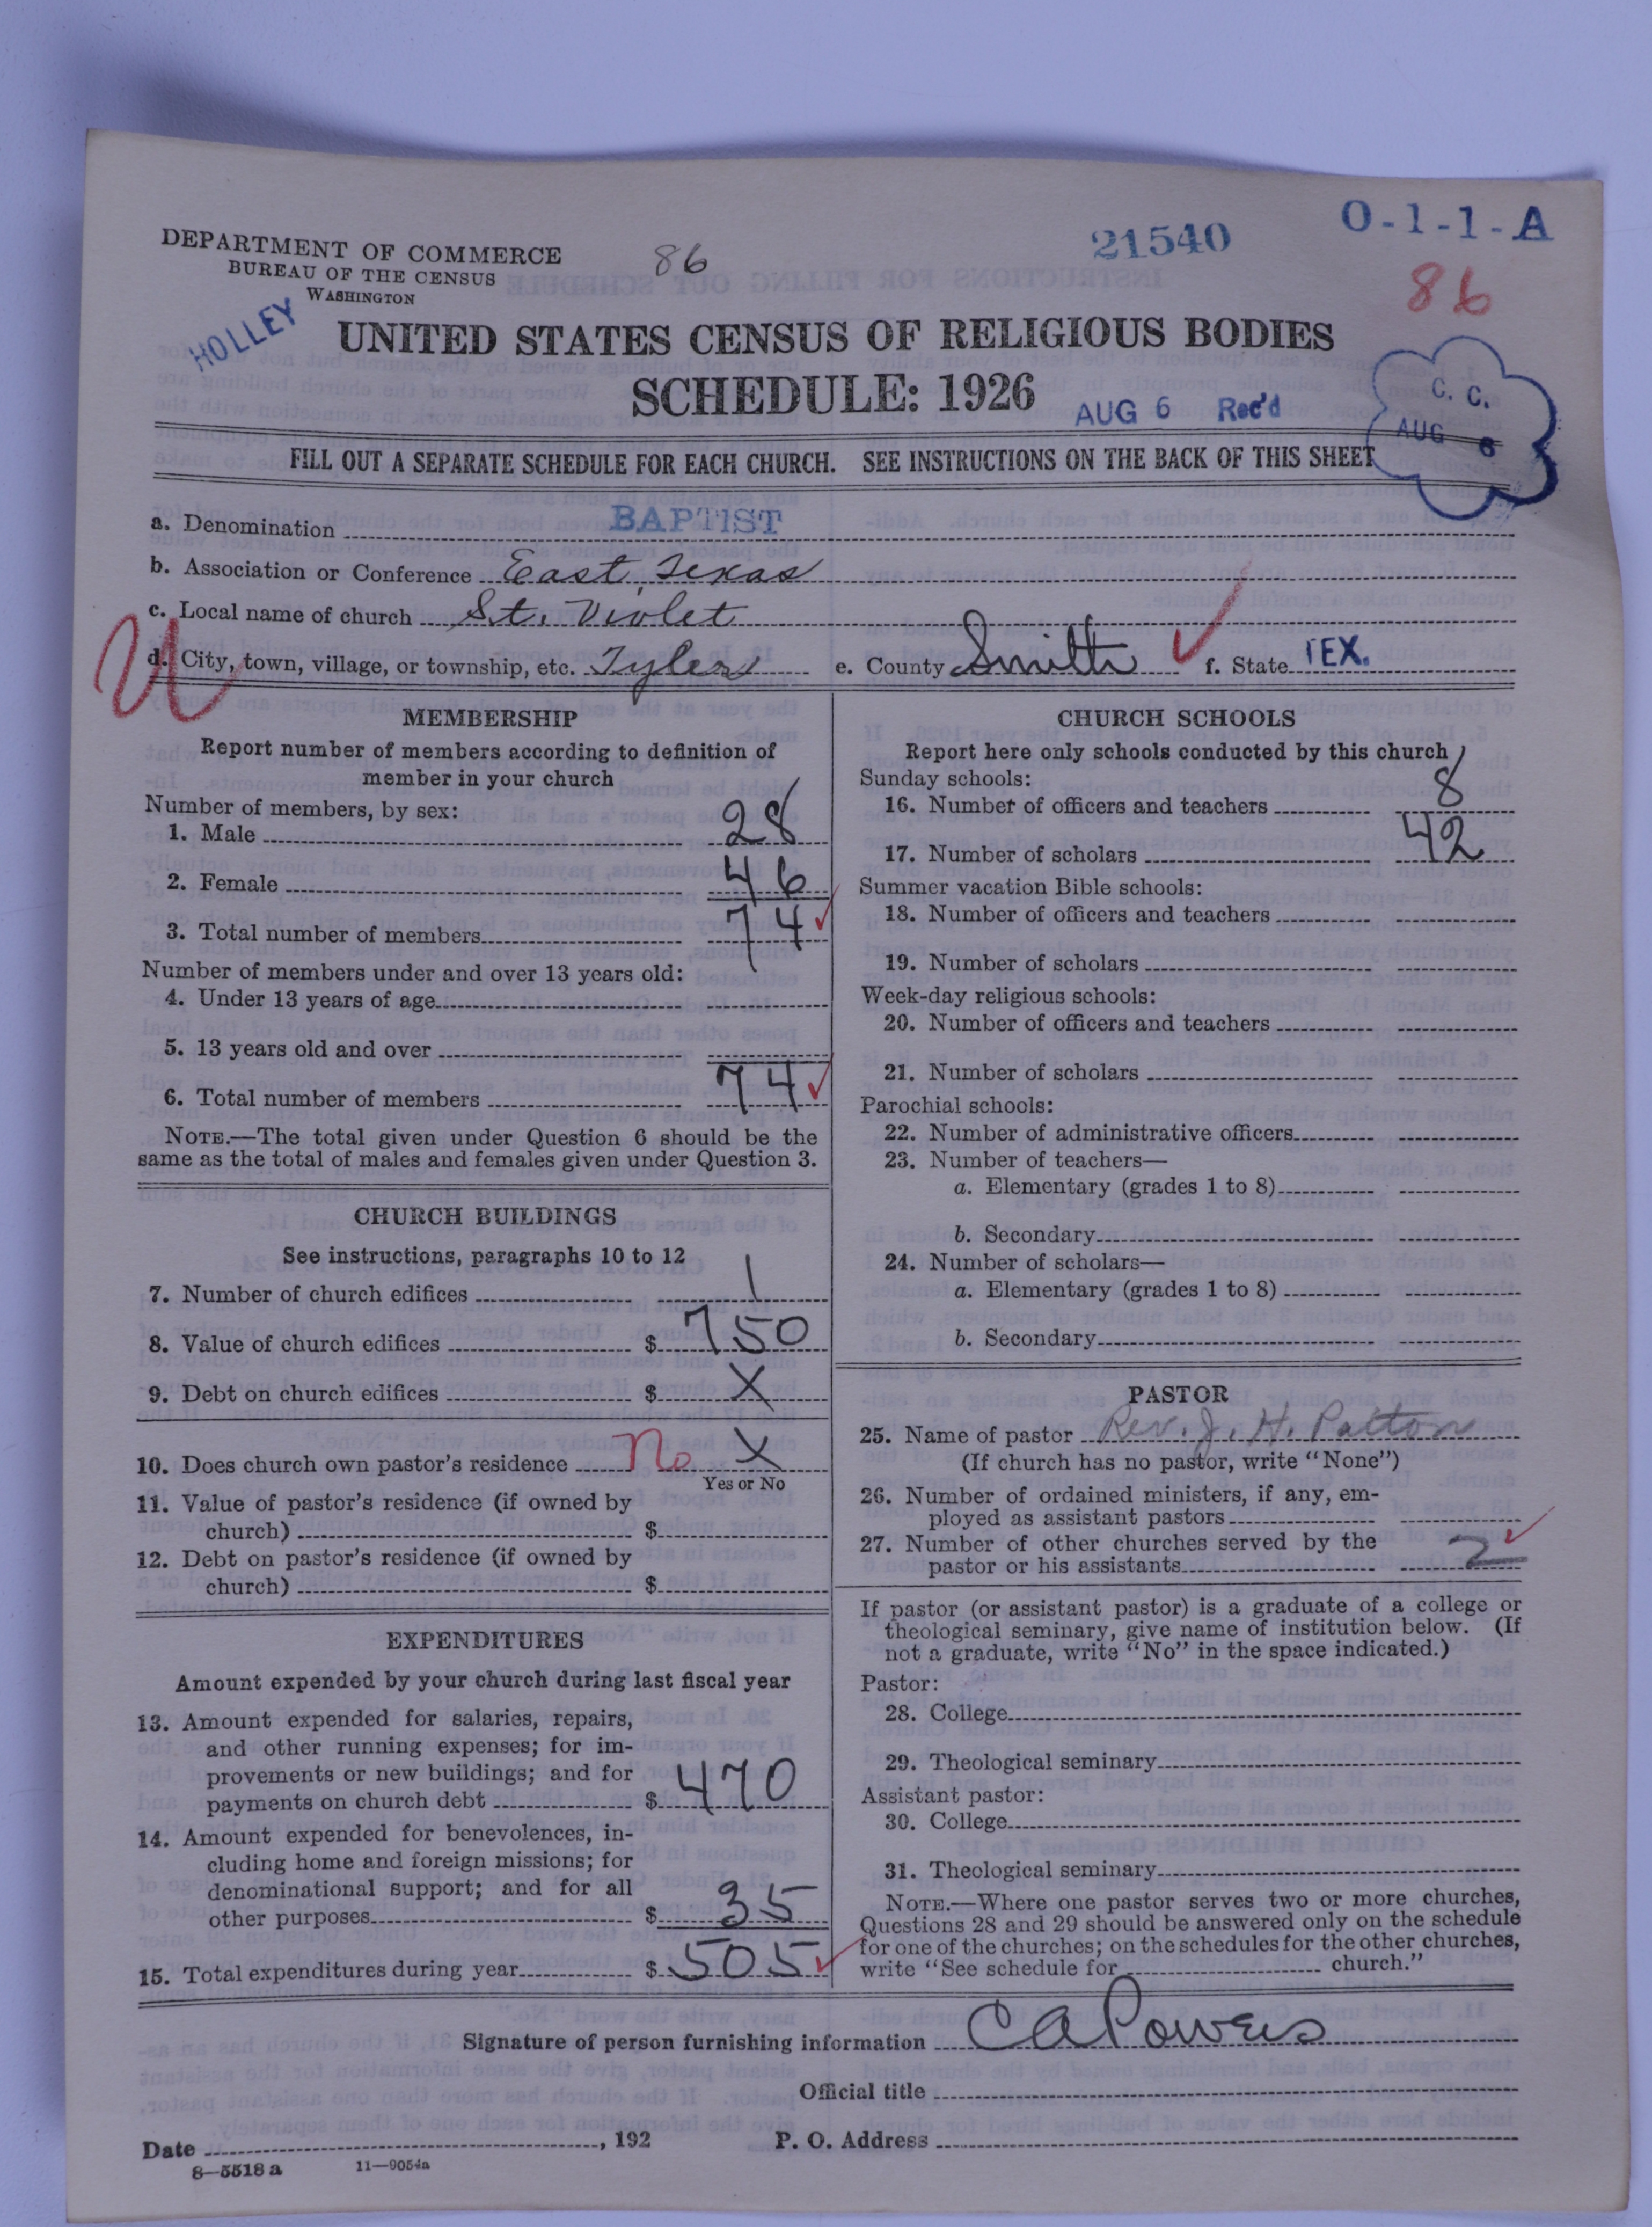 DEPARTMENT OF COMMERCE
BUREAU OF THE CENSUS
WASHINGTON
86
21540
O-1-1-A
86
HOLLEY
UNITED STATES CENSUS OF RELIGIOUS BODIES
SCHEDULE: 1926
AUG 6 Rec'd
C. C.
AUG 6
FILL OUT A SEPARATE SCHEDULE FOR EACH CHURCH. SEE INSTRUCTIONS ON THE BACK OF THIS SHEET
a. Denomination BAPTIST
b. Association or Conference East Texas
c. Local name of church St. Violet
U
d. City, town, village, or township, etc. Tyler e. County Smith f. State TEX.
MEMBERSHIP
Report number of members according to definition of
member in your church
Number of members, by sex:
1. Male 28
2. Female 46
3. Total number of members 74
Number of members under and over 13 years old:
4. Under 13 years of age
5. 13 years old and over
6. Total number of members 74
NOTE.—The total given under Question 6 should be the
same as the total of males and females given under Question 3.
CHURCH BUILDINGS
See instructions, paragraphs 10 to 12
7. Number of church edifices 1
8. Value of church edifices $ 750
9. Debt on church edifices $ X
10. Does church own pastor's residence No X
Yes or No
11. Value of pastor's residence (if owned by
church) $
12. Debt on pastor's residence (if owned by
church) $
EXPENDITURES
Amount expended by your church during last fiscal year
13. Amount expended for salaries, repairs,
and other running expenses; for im-
provements or new buildings; and for
payments on church debt $ 470
14. Amount expended for benevolences, in-
cluding home and foreign missions; for
denominational support; and for all
other purposes $ 35
15. Total expenditures during year $ 505
CHURCH SCHOOLS
Report here only schools conducted by this church
Sunday schools:
16. Number of officers and teachers 8
17. Number of scholars 42
Summer vacation Bible schools:
18. Number of officers and teachers
19. Number of scholars
Week-day religious schools:
20. Number of officers and teachers
21. Number of scholars
Parochial schools:
22. Number of administrative officers
23. Number of teachers—
a. Elementary (grades 1 to 8)
b. Secondary
24. Number of scholars—
a. Elementary (grades 1 to 8)
b. Secondary
PASTOR
25. Name of pastor Rev. J. H. Patton
(If church has no pastor, write "None")
26. Number of ordained ministers, if any, em-
ployed as assistant pastors
27. Number of other churches served by the
pastor or his assistants 2
If pastor (or assistant pastor) is a graduate of a college or
theological seminary, give name of institution below. (If
not a graduate, write "No" in the space indicated.)
Pastor:
28. College
29. Theological seminary
Assistant pastor:
30. College
31. Theological seminary
NOTE.—Where one pastor serves two or more churches,
Questions 28 and 29 should be answered only on the schedule
for one of the churches; on the schedules for the other churches,
write "See schedule for church."
Signature of person furnishing information C A Powers
Official title
Date , 192 P. O. Address
8—5518 a 11—9054a